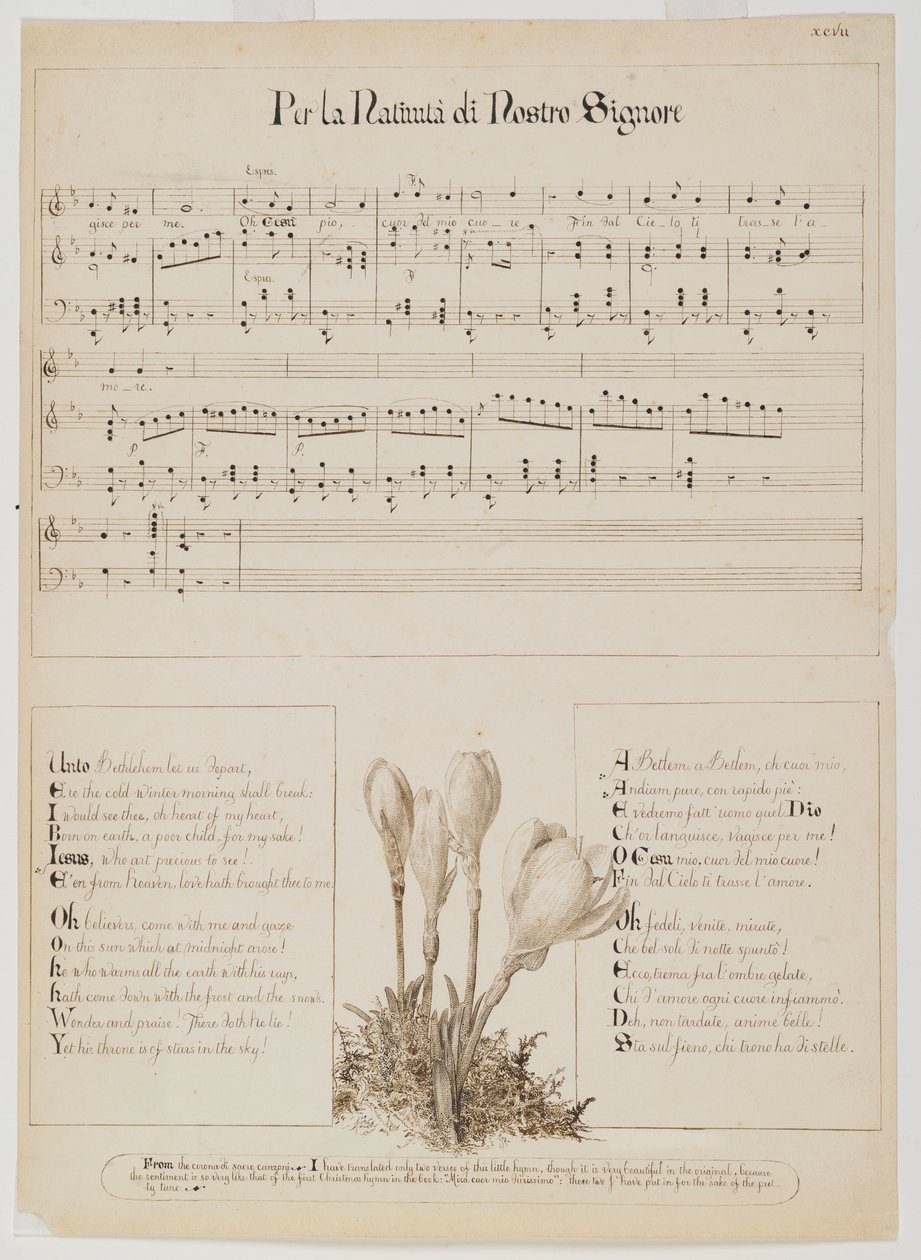 xcvii
Per la Natività di Nostro Signore
Espres.
F.
gisce per me. Oh Gesù pio, cuor del mio cuo_re Fin dal Cie_lo ti tras_se l'a_
8va
Espres.
F
mo_re.
P. F. P.
8va
Unto Bethlehem let us depart,
Ere the cold winter morning shall break:
I would see thee, oh heart of my heart,
Born on earth, a poor child, for my sake!
Iesus, who art precious to see!
E'en from heaven, love hath brought thee to me.
Oh believers, come with me and gaze
On this sun which at midnight arose!
he who warms all the earth with his rays,
hath come down with the frost and the snows.
Wonder and praise! There doth he lie!
Yet his throne is of stars in the sky!
A Betlem, a Betlem, oh cuor mio,
Andiam pure, con rapido piè:
E vedremo fatt' uomo quel Dio
Ch'or languisce, vagisce per me!
O Gesu mio, cuor del mio cuore!
Fin dal Cielo ti trasse l'amore.
Oh fedeli, venite, mirate,
Che bel sole di notte spuntò!
Ecco, trema fra l'ombre gelate,
Chi d'amore ogni cuore infiammò.
Deh, non tardate, anime belle!
Sta sul fieno, chi trono ha di stelle.
From the corona di sacre canzoni. I have translated only two verses of this little hymn, though it is very beautiful in the original, because
the sentiment is so very like that of the first Christmas hymn in the book: "Mira cuor mio durissimo": these two I have put in for the sake of the pret_
ty tune.